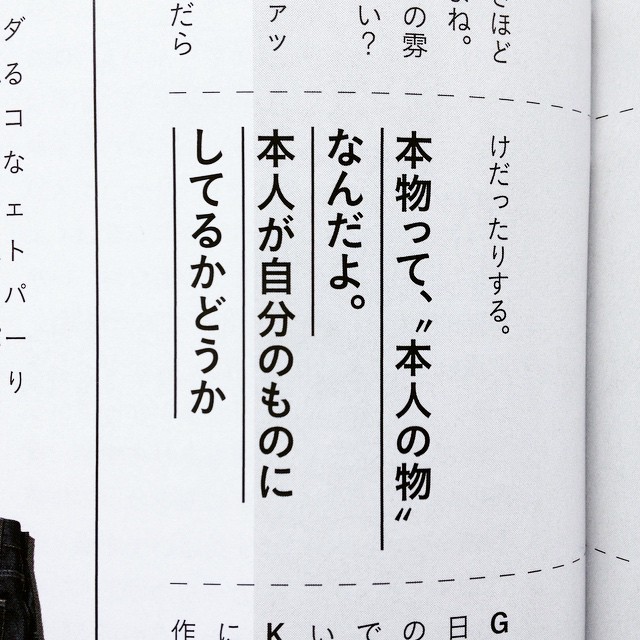 さほど
よね。
の雰
い？
アッ
だら
けだったりする。
本物って、〝本人の物〟
なんだよ。
本人が自分のものに
してるかどうか
G
日
の
で
い
K
に
作
ダ
る
コ
な
ェ
ト
パ
ー
り